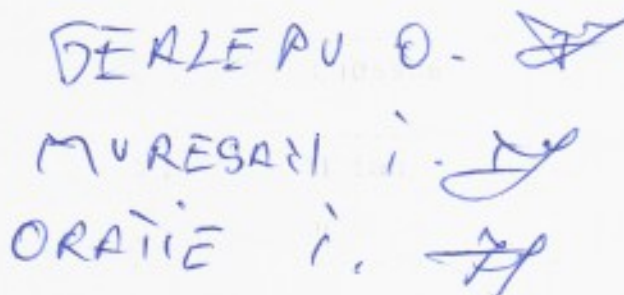 GERLEPU O.
MURESAN I.
ORATIE I.